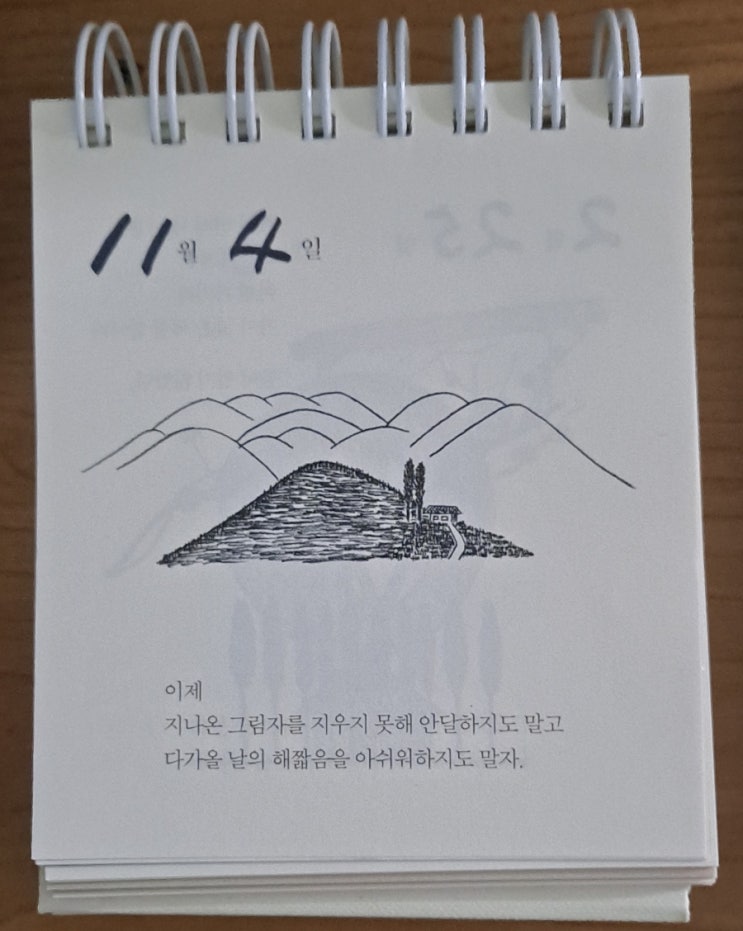 11월 4일
이제
지나온 그림자를 지우지 못해 안달하지도 말고
다가올 날의 해짧음을 아쉬워하지도 말자.